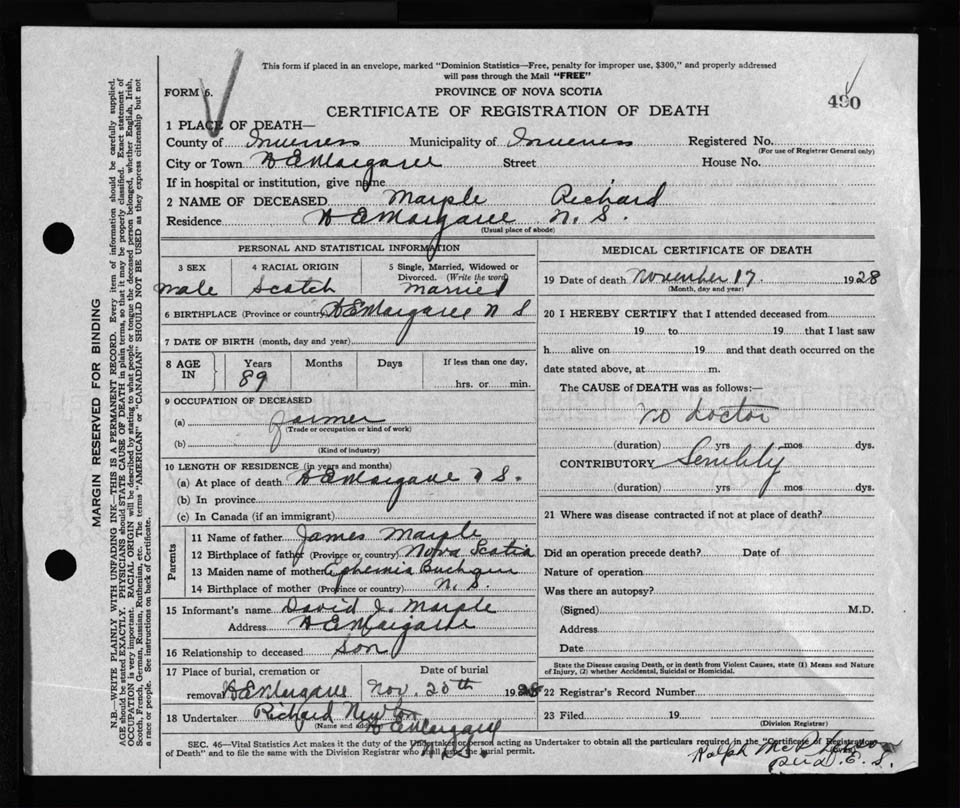 This form if placed in an envelope, marked "Dominion Statistics—Free, penalty for improper use, $300," and properly addressed
will pass through the Mail "FREE"
FORM 6.
PROVINCE OF NOVA SCOTIA
490
CERTIFICATE OF REGISTRATION OF DEATH
1 PLACE OF DEATH—
County of Inverness Municipality of Inverness Registered No.
(For use of Registrar General only)
City or Town N E Margaree Street House No.
If in hospital or institution, give name
2 NAME OF DECEASED Marple Richard
Residence N E Margaree N. S.
(Usual place of abode)
PERSONAL AND STATISTICAL INFORMATION
3 SEX 4 RACIAL ORIGIN 5 Single, Married, Widowed or
Divorced. (Write the word)
male Scotch married
6 BIRTHPLACE (Province or country) N E Margaree N S
7 DATE OF BIRTH (month, day and year)
8 AGE IN Years Months Days If less than one day,
89 hrs. or min.
9 OCCUPATION OF DECEASED
(a) farmer
(Trade or occupation or kind of work)
(b)
(Kind of industry)
10 LENGTH OF RESIDENCE (in years and months)
(a) At place of death N E Margaree N S.
(b) In province
(c) In Canada (if an immigrant)
Parents
11 Name of father James Marple
12 Birthplace of father (Province or country) Nova Scotia
13 Maiden name of mother Ephemia
14 Birthplace of mother (Province or country) N. S.
15 Informant's name David J. Marple
Address N E Margaree
16 Relationship to deceased Son
17 Place of burial, cremation or Date of burial
removal N E Margaree Nov. 20th 1928
18 Undertaker Richard Newton
(Name and address) N E Margaree
N. S.
MEDICAL CERTIFICATE OF DEATH
19 Date of death November 17. 1928
(Month, day and year)
20 I HEREBY CERTIFY that I attended deceased from
19 to 19 that I last saw
h alive on 19 and that death occurred on the
date stated above, at m.
The CAUSE of DEATH was as follows:—
No doctor
(duration) yrs mos dys.
CONTRIBUTORY Senility
(duration) yrs mos dys.
21 Where was disease contracted if not at place of death?
Did an operation precede death? Date of
Nature of operation
Was there an autopsy?
(Signed) M.D.
Address
Date
State the Disease causing Death, or in death from Violent Causes, state (1) Means and Nature
of Injury, (2) whether Accidental, Suicidal or Homicidal.
22 Registrar's Record Number
23 Filed 19
(Division Registrar)
SEC. 46—Vital Statistics Act makes it the duty of the Undertaker or person acting as Undertaker to obtain all the particulars required in the "Certificate of Registration
of Death" and to file the same with the Division Registrar who shall issue the burial permit.
Ralph
MARGIN RESERVED FOR BINDING
N.B.—WRITE PLAINLY WITH UNFADING INK—THIS IS A PERMANENT RECORD. Every item of information should be carefully supplied.
AGE should be stated EXACTLY. PHYSICIANS should STATE CAUSE OF DEATH in plain terms, so that it may be properly classified. Exact statement of
OCCUPATION is very important. RACIAL ORIGIN will be described by stating to what people or tongue the deceased person belonged, whether English, Irish,
Scotch, French, German, Russian, Ruthenian, etc. The terms "AMERICAN" or "CANADIAN" SHOULD NOT BE USED as they express citizenship but not
a race or people. See instructions on back of Certificate.